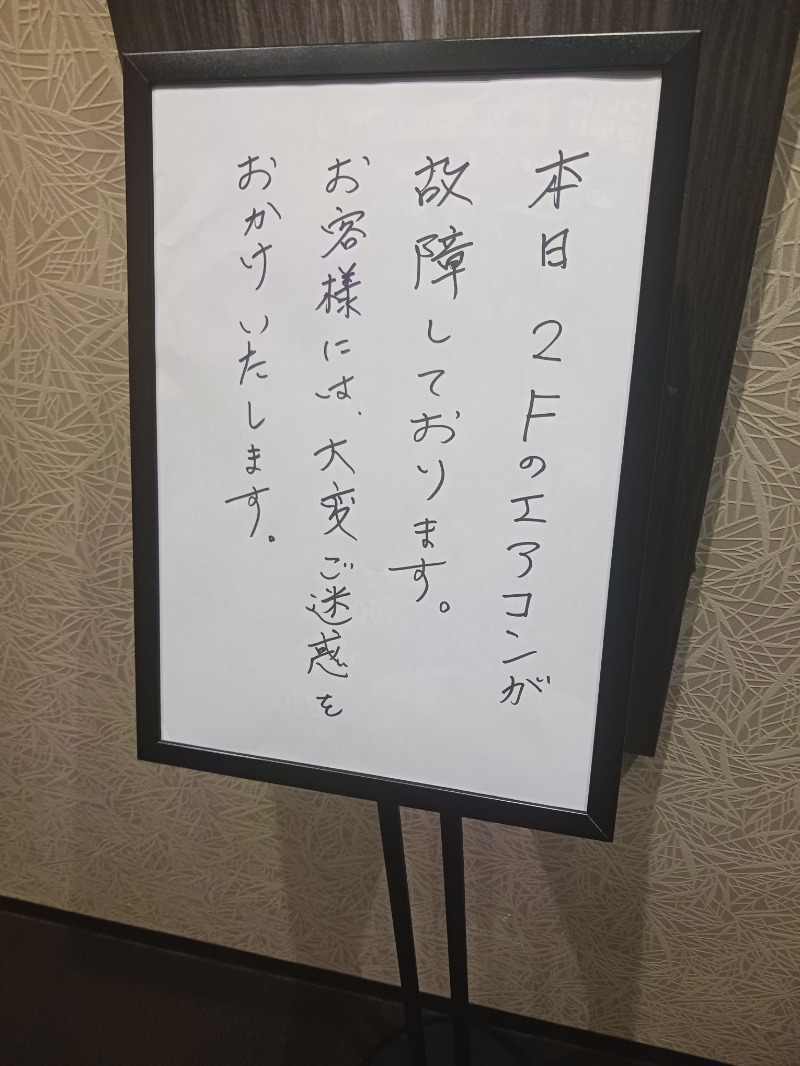 本日 2Fのエアコンが
故障しております。
お客様には、大変ご迷惑を
おかけいたします。